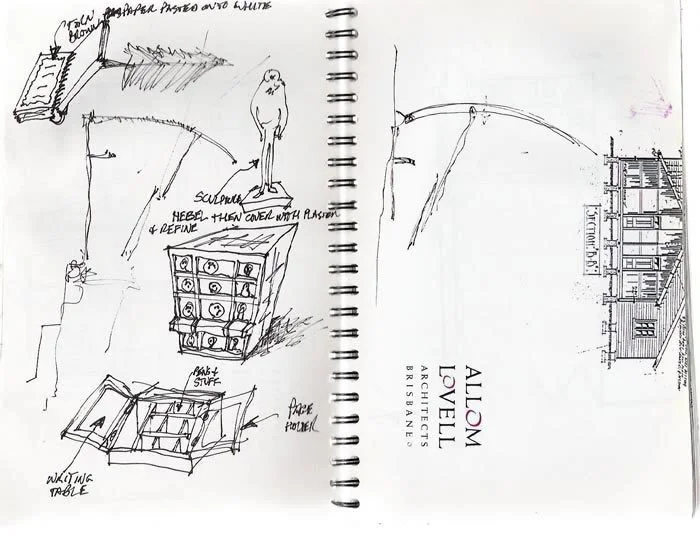 TORN
BROWN PAPER PASTED ONTO WHITE
SCULPTURE
HEBEL THEN COVER WITH PLASTER
& REFINE
PENS &
STUFF
PAGE
HOLDER
WRITING
TABLE
SECTION 'B-B'
ALLOM
LOVELL
ARCHITECTS
BRISBANE